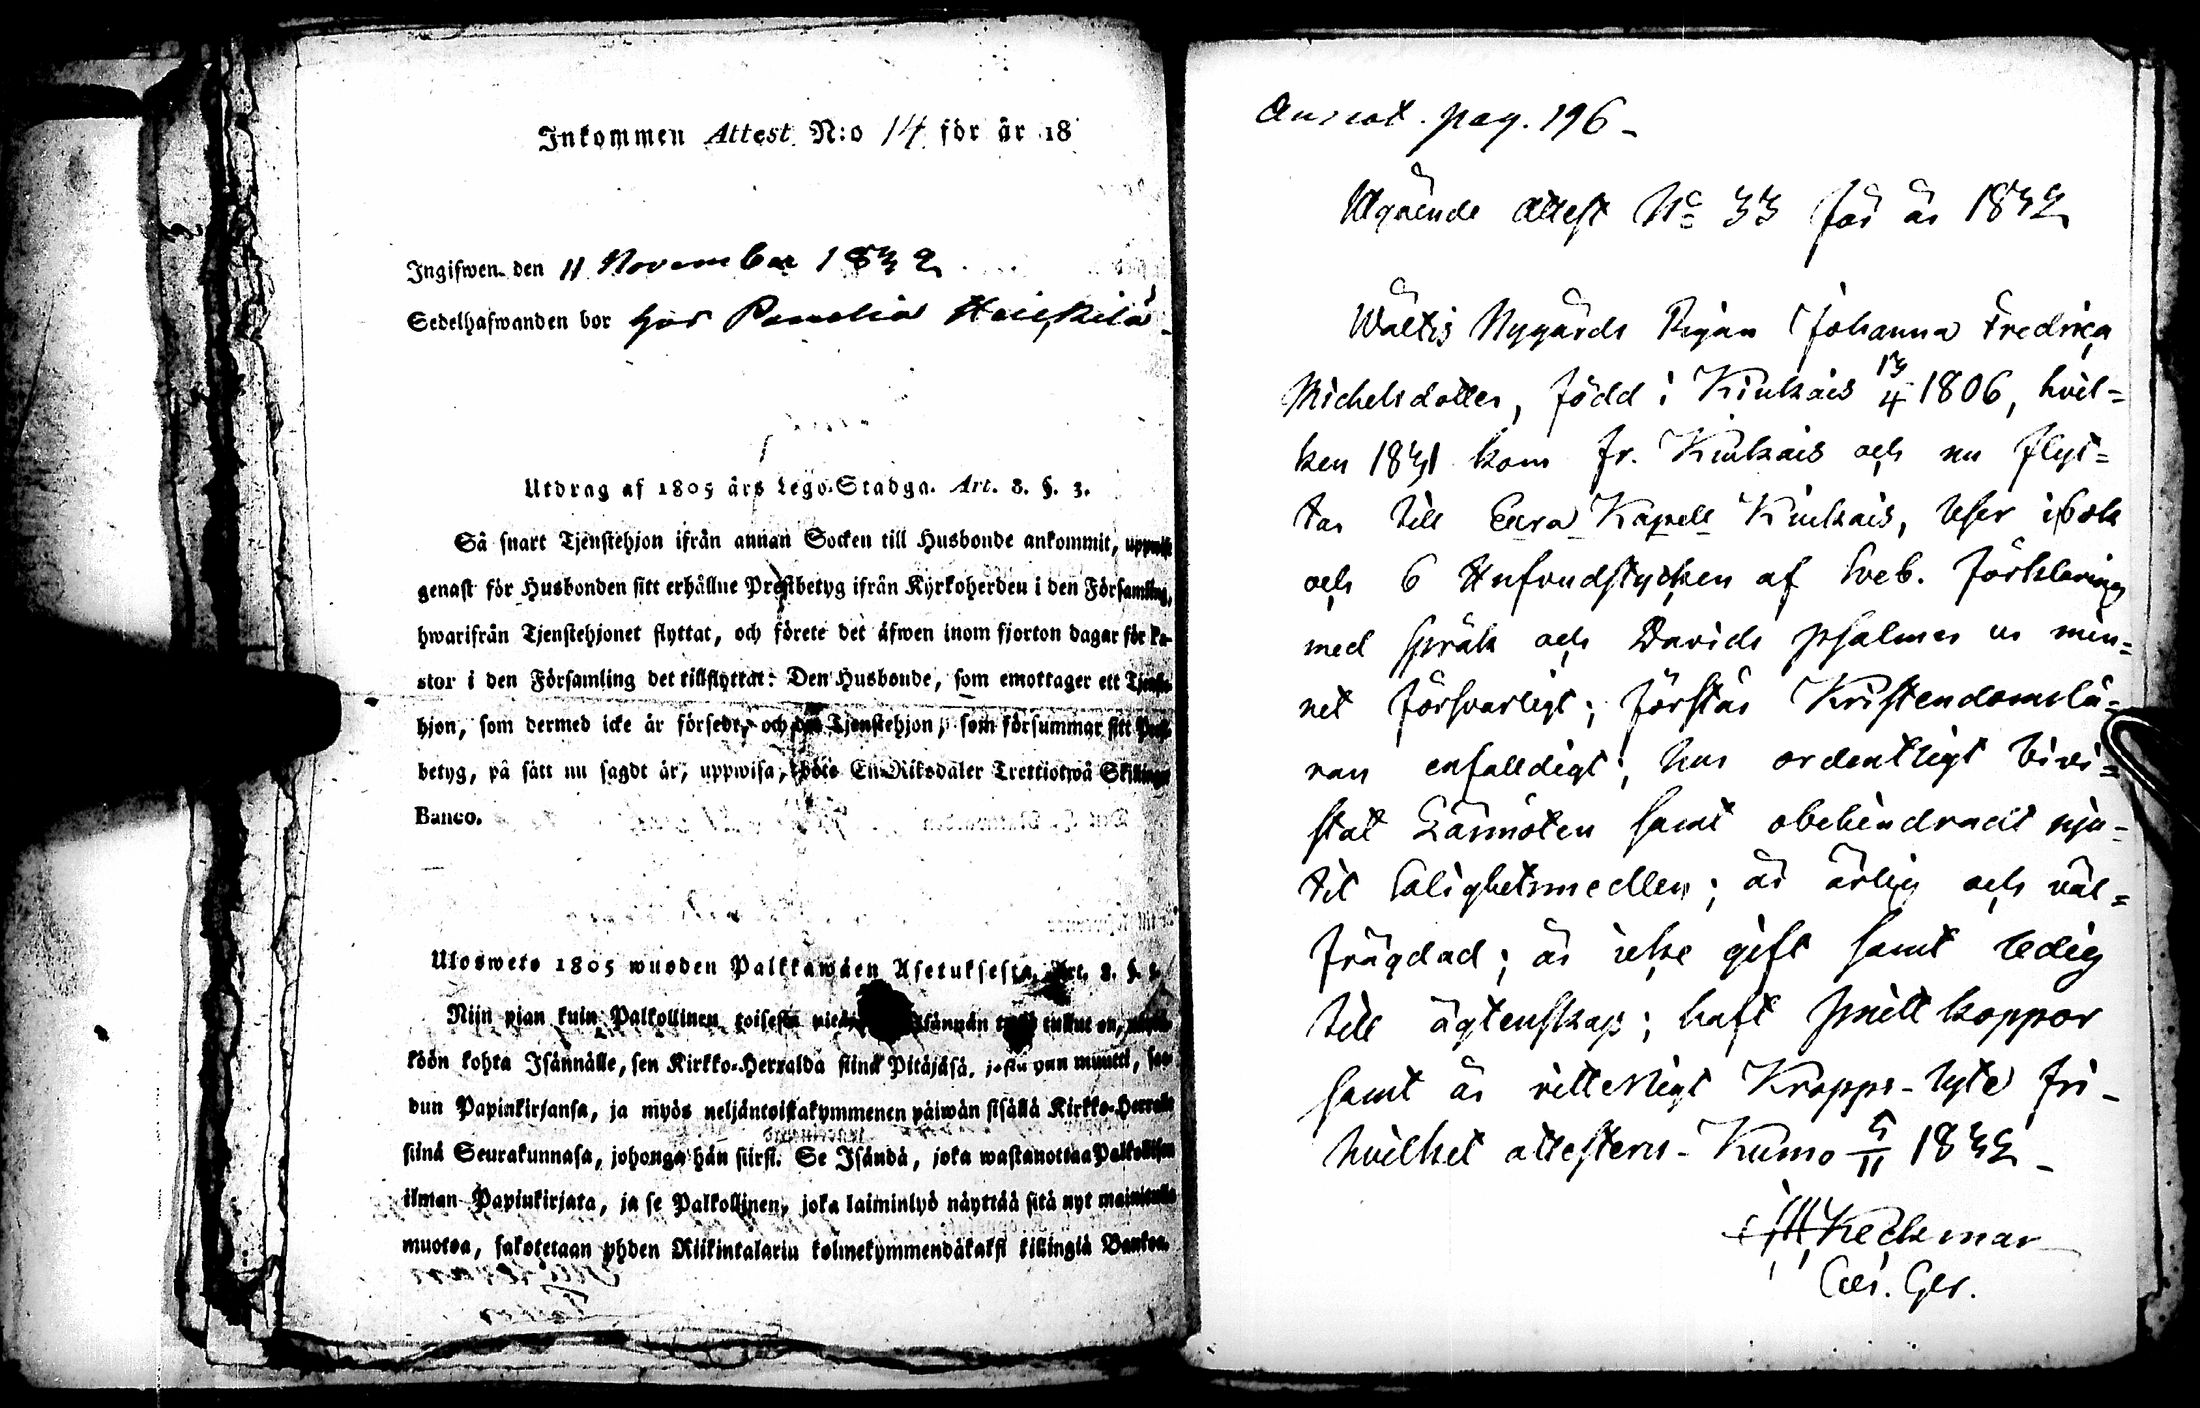 Inkommen Attest N:o 14 för år 18
Ingifwen den 11 November 1832
Sedelhafwanden bor hos Panelia Heickilä
Utdrag af 1805 års Lego-Stadga. Art. 8. §. 3.
Så snart Tjenstehjon ifrån annan Socken till Husbonde ankommit, uppwise
genast för Husbonden sitt erhållne Prestbetyg ifrån Kyrkoherden i den Församling,
hwarifrån Tjenstehjonet flyttat, och förete det äfwen inom fjorton dagar för Pa-
stor i den Församling det tillflyttat: Den Husbonde, som emottager ett Tjenste-
hjon, som dermed icke är försedt, och det Tjenstehjon, som försummar sitt Prest-
betyg, på sätt nu sagdt är, uppwisa, böte En Riksdaler Trettiotwå Skillingar
Banco.
Ulosweto 1805 wuoden Palkkawäen Asetuksesta, Art. 8. §. 3.
Nijn pian kuin Palkollinen toisesta Isännän tullut on,
köön kohta Isännälle, sen Kirkko-Herralda siinä Pitäjäsä, josta hän muutti, saa-
dun Papinkirjansa, ja myös neljäntoistakymmenen päiwän sisällä Kirkko-Herralle
siinä Seurakunnasa, johonga hän siirsi. Se Isändä, joka wastanottaa Palkollisen
ilman Papinkirjata, ja se Palkollinen, joka laiminlyö näyttää sitä nyt mainitulla
muotoa, sakotetaan yhden Riikintalarin kolmekymmendäkaksi killingiä Bankoa.
Annot. pag. 196 -
Utgående Attest No 33 för år 1832
Wältis Nygårds Pigan Johanna Fredrica
Michelsdotter, född i Kiukais 13/4 1806, hvil=
ken 1831 kom fr. Kiukais och nu flyt=
tar till Eura Kapell Kiukais, läser i bok
och 6 Hufvudstycken af Sveb. Förklaring
med språk och Davids psalmer ur min=
net försvarligt; förstår Kristendomslä=
ran enfalldigt; har ordentligt bivi=
stat Läsmöten samt obehindradt nju=
tit Salighetsmedlen; är ärlig och väl=
frägdad; är icke gift samt ledig
till ägtenskap; haft smittkoppor
samt är vitterligt Kropps-lyte fri -
hvilket attesterar - Kumo 5/11 1832 -
Keckman